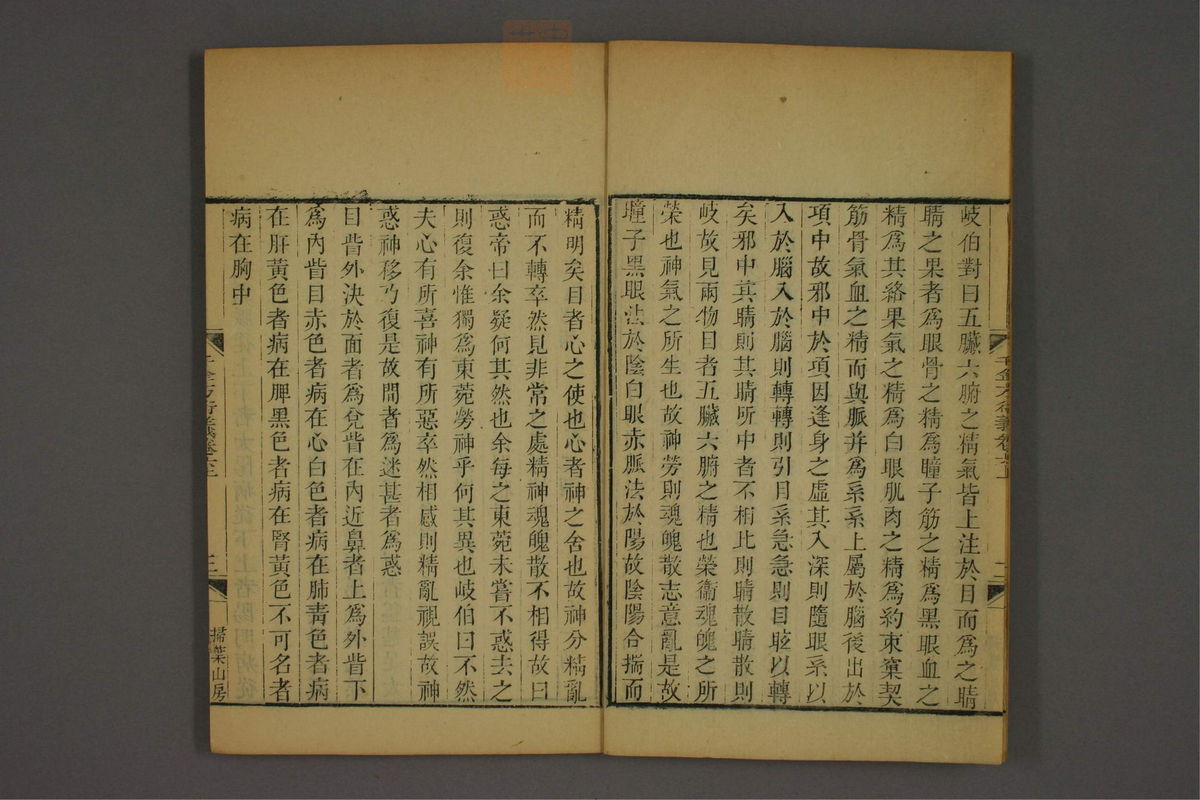 岐伯對曰五臟六腑之精氣皆上注於目而爲之睛
睛之果者爲眼骨之精爲瞳子筋之精爲黑眼血之
精爲其絡果氣之精爲白眼肌肉之精爲約束窠契
筋骨氣血之精而與脈并爲系系上屬於腦後出於
項中故邪中於項因逢身之虛其入深則隨眼系以
入於腦入於腦則轉轉則引目系急急則目眩以轉
矣邪中其睛則其睛所中者不相比則睛散睛散則
岐故見兩物目者五臟六腑之精也榮衛魂魄之所
榮也神氣之所生也故神勞則魂魄散志意亂是故
瞳子黑眼法於陰白眼赤脈法於陽故陰陽合揣而
精明矣目者心之使也心者神之舍也故神分精亂
而不轉卒然見非常之處精神魂魄散不相得故曰
惑帝曰余疑何其然也余每之東菀未嘗不惑去之
則復余惟獨爲東菀勞神乎何其異也岐伯曰不然
夫心有所喜神有所惡卒然相感則精亂視誤故神
惑神移乃復是故間者爲迷甚者爲惑
目眥外決於面者爲兌眥在內近鼻者上爲外眥下
爲內眥目赤色者病在心白色者病在肺靑色者病
在肝黃色者病在脾黑色者病在腎黃色不可名者
病在胸中
千金方衍義卷六上
二
三
掃葉山房